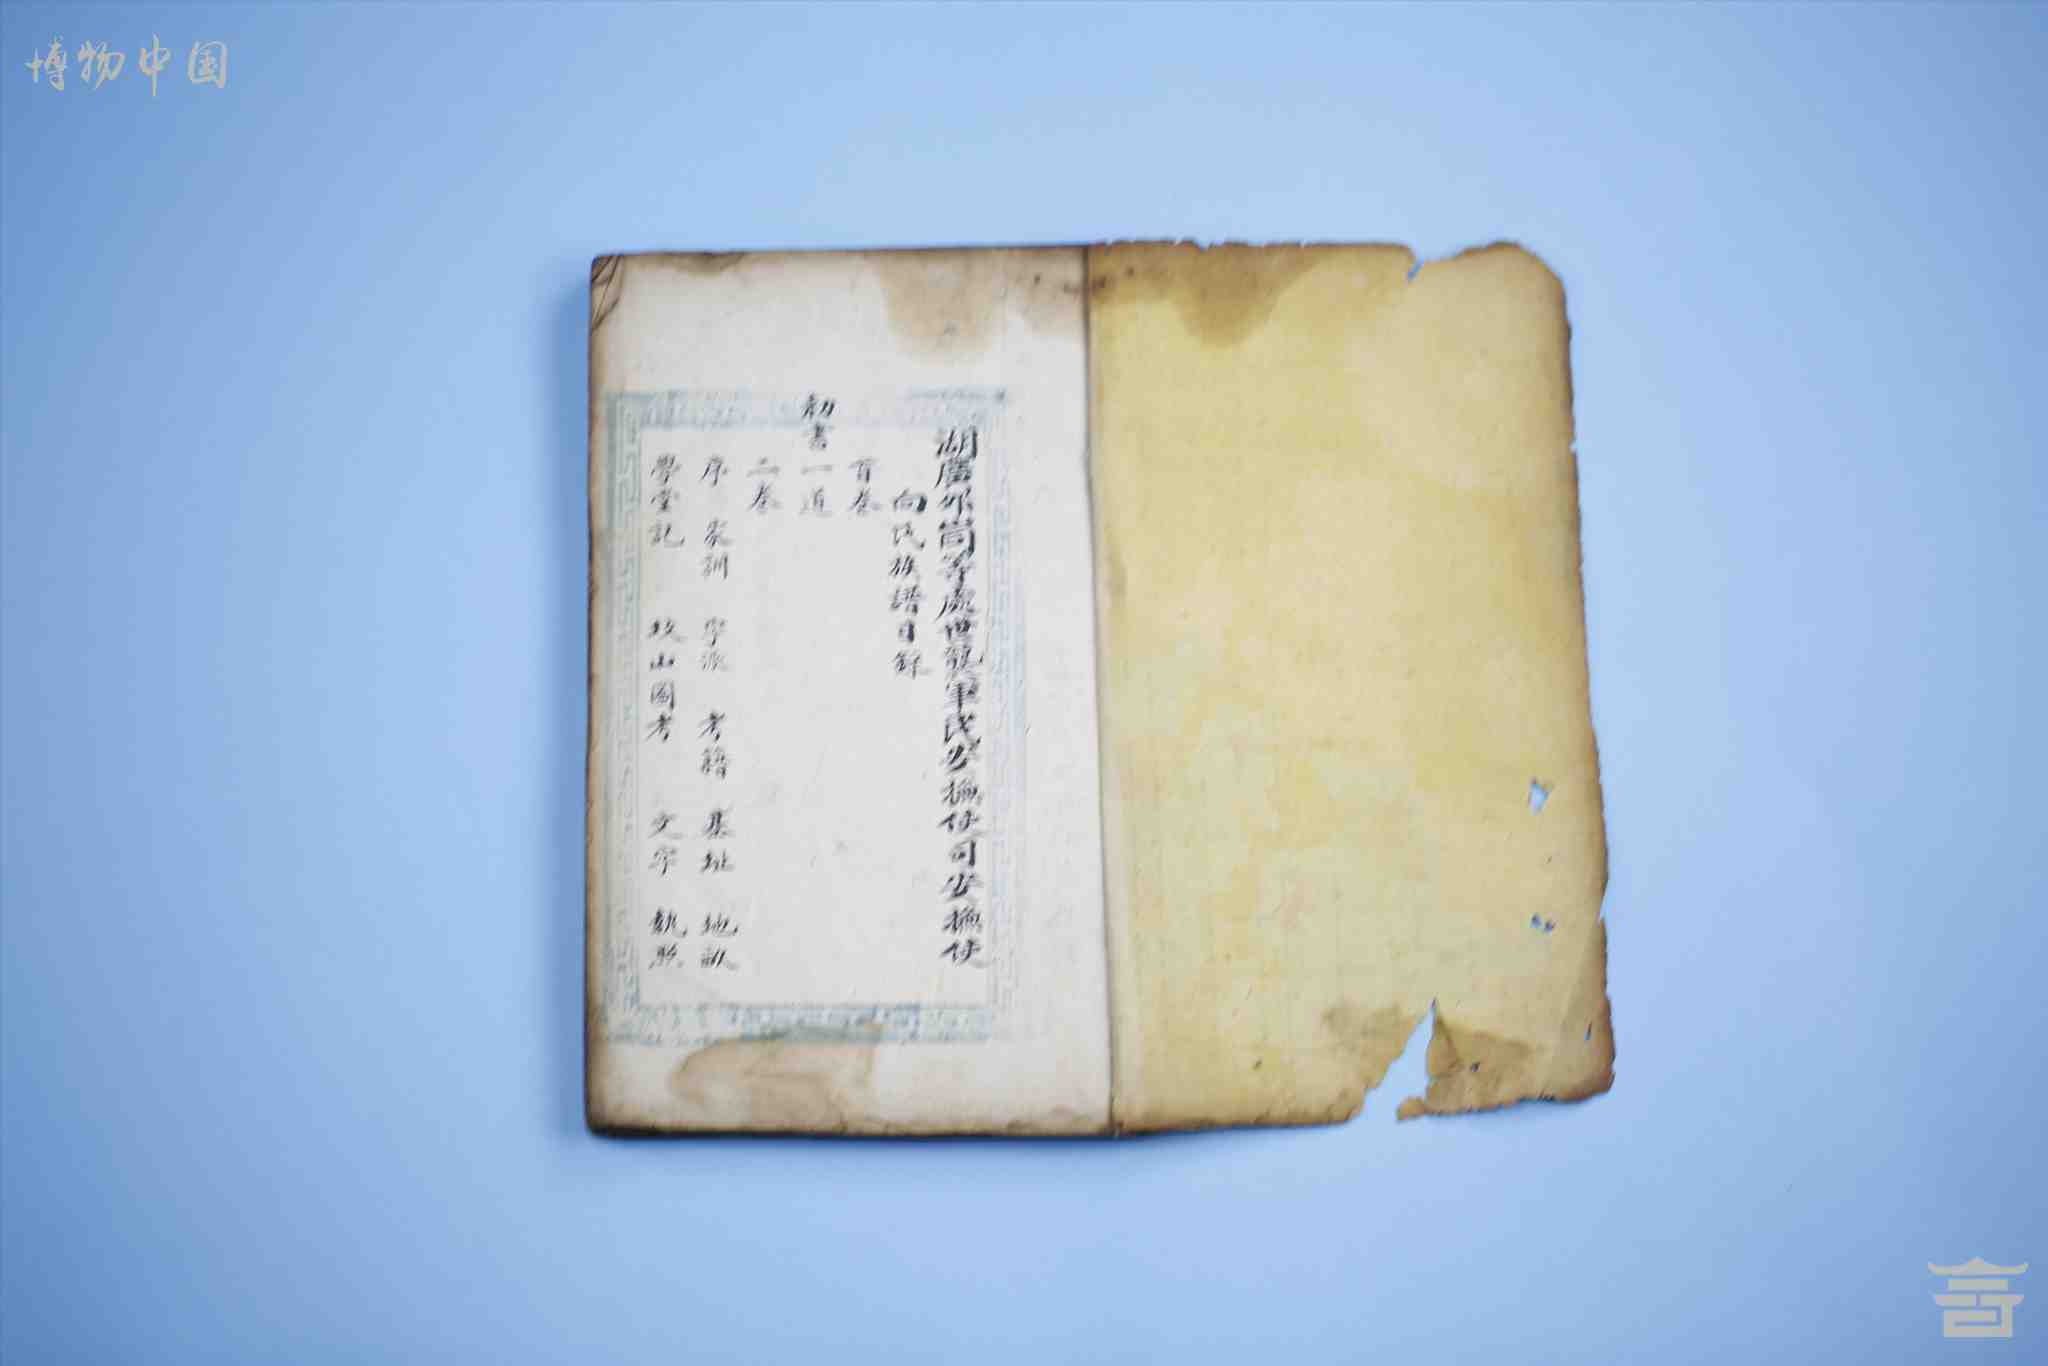 博物中国
湖廣邜峝等處世襲軍民安撫使司安撫使
向氏族譜目録
首卷
勅書一道
二卷
序 家訓 字派 考籍 基址 地畝
學堂記 坟山圖考 文字 執照